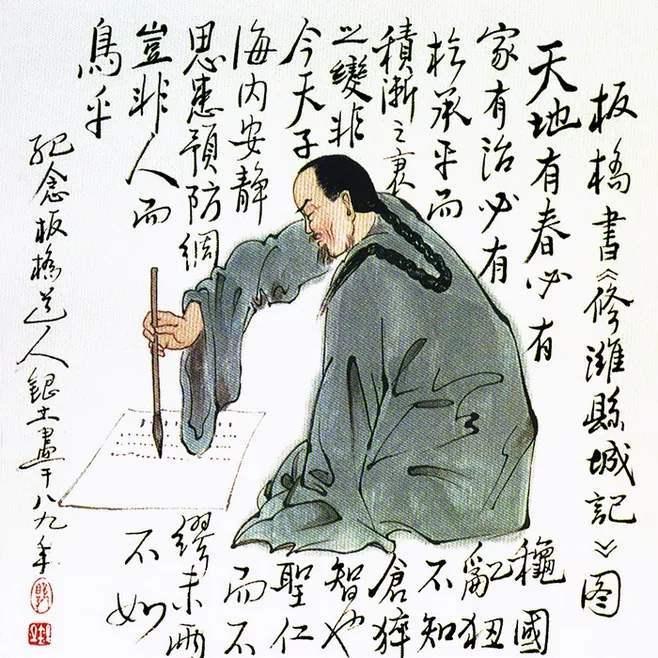 板橋書《修濰縣城記》图
天地有春必有穐國
家有治必有亂狃
於承平而不知
積漸之衰倉猝
之變非智也
今天子聖仁
海内安静而不
思患預防綢繆未雨
豈非人而不如
鳥乎
紀念板橋道人銀土畫于八九年